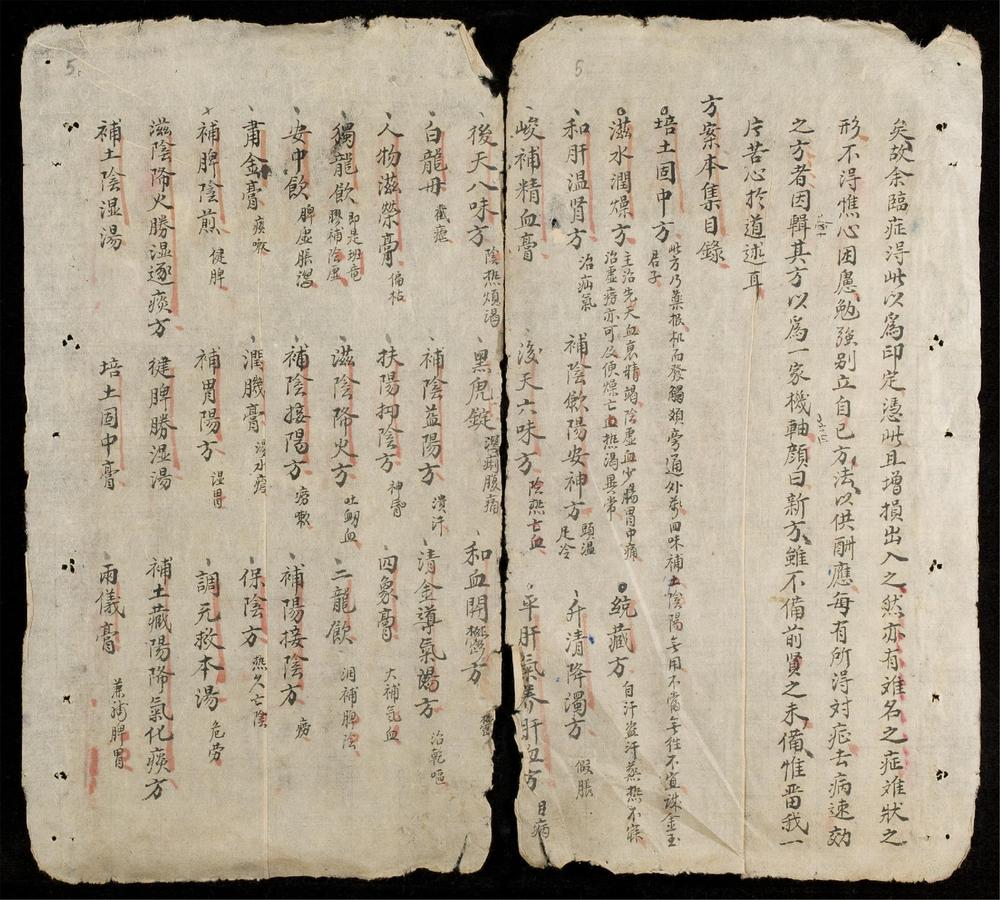 矣故余臨症得此以爲印定憑此且增損出入之然亦有难名之症难狀之
形不得憔心困慮勉強别立自己方法以供酧應每有所得対症去病速効
之方者因輯其方以爲一家機軸顔曰新方雖不備前賢之未備惟畱我一
片苦心於道述耳
方案本集目錄
培土固中方 此方乃藥根机而發觸類旁通外參四味補土陰陽無用不當無徃不宜誅金玉
君子
滋水潤燥方 主治先天血衰精竭陰虛血少腸胃中痛
治虛癆亦可及便燥亡血热渴異常
純藏方 自汗盗汗蒸热不寐
和肝温肾方 治疝氣
補陰歛陽安神方 頭温足冷
升清降濁方 假脹
峻補精血膏
後天六味方 陰热亡血
平肝氣养肝血方 目病
後天八味方 陰热煩渴
黑虎錠 瀉痢腹痛
和血開鬱方
白龍丹 截瘧
補陰益陽方 潰汗
清金導氣湯方 治乾嘔
人物滋榮膏 偏枯
扶陽抑陰方 神昏
四象膏 大補气血
獨龍飲 即是班竜膠補陰虛
滋陰降火方 吐衂血
二龍飲 涸補脾陰
安中飲 脾虛脹瀉
補陰接陽方 癆嗽
補陽接陰方 癆
肅金膏 痰嗽
潤臓膏
保陰方 热久亡陰
補脾陰煎 健脾
補胃陽方 湿胃
調元救本湯 危劳
滋陰降火勝湿逐痰方
健脾勝湿湯
補土藏陽降氣化痰方
補土陰湿湯
培土固中膏
兩儀膏 脾胃
5
5